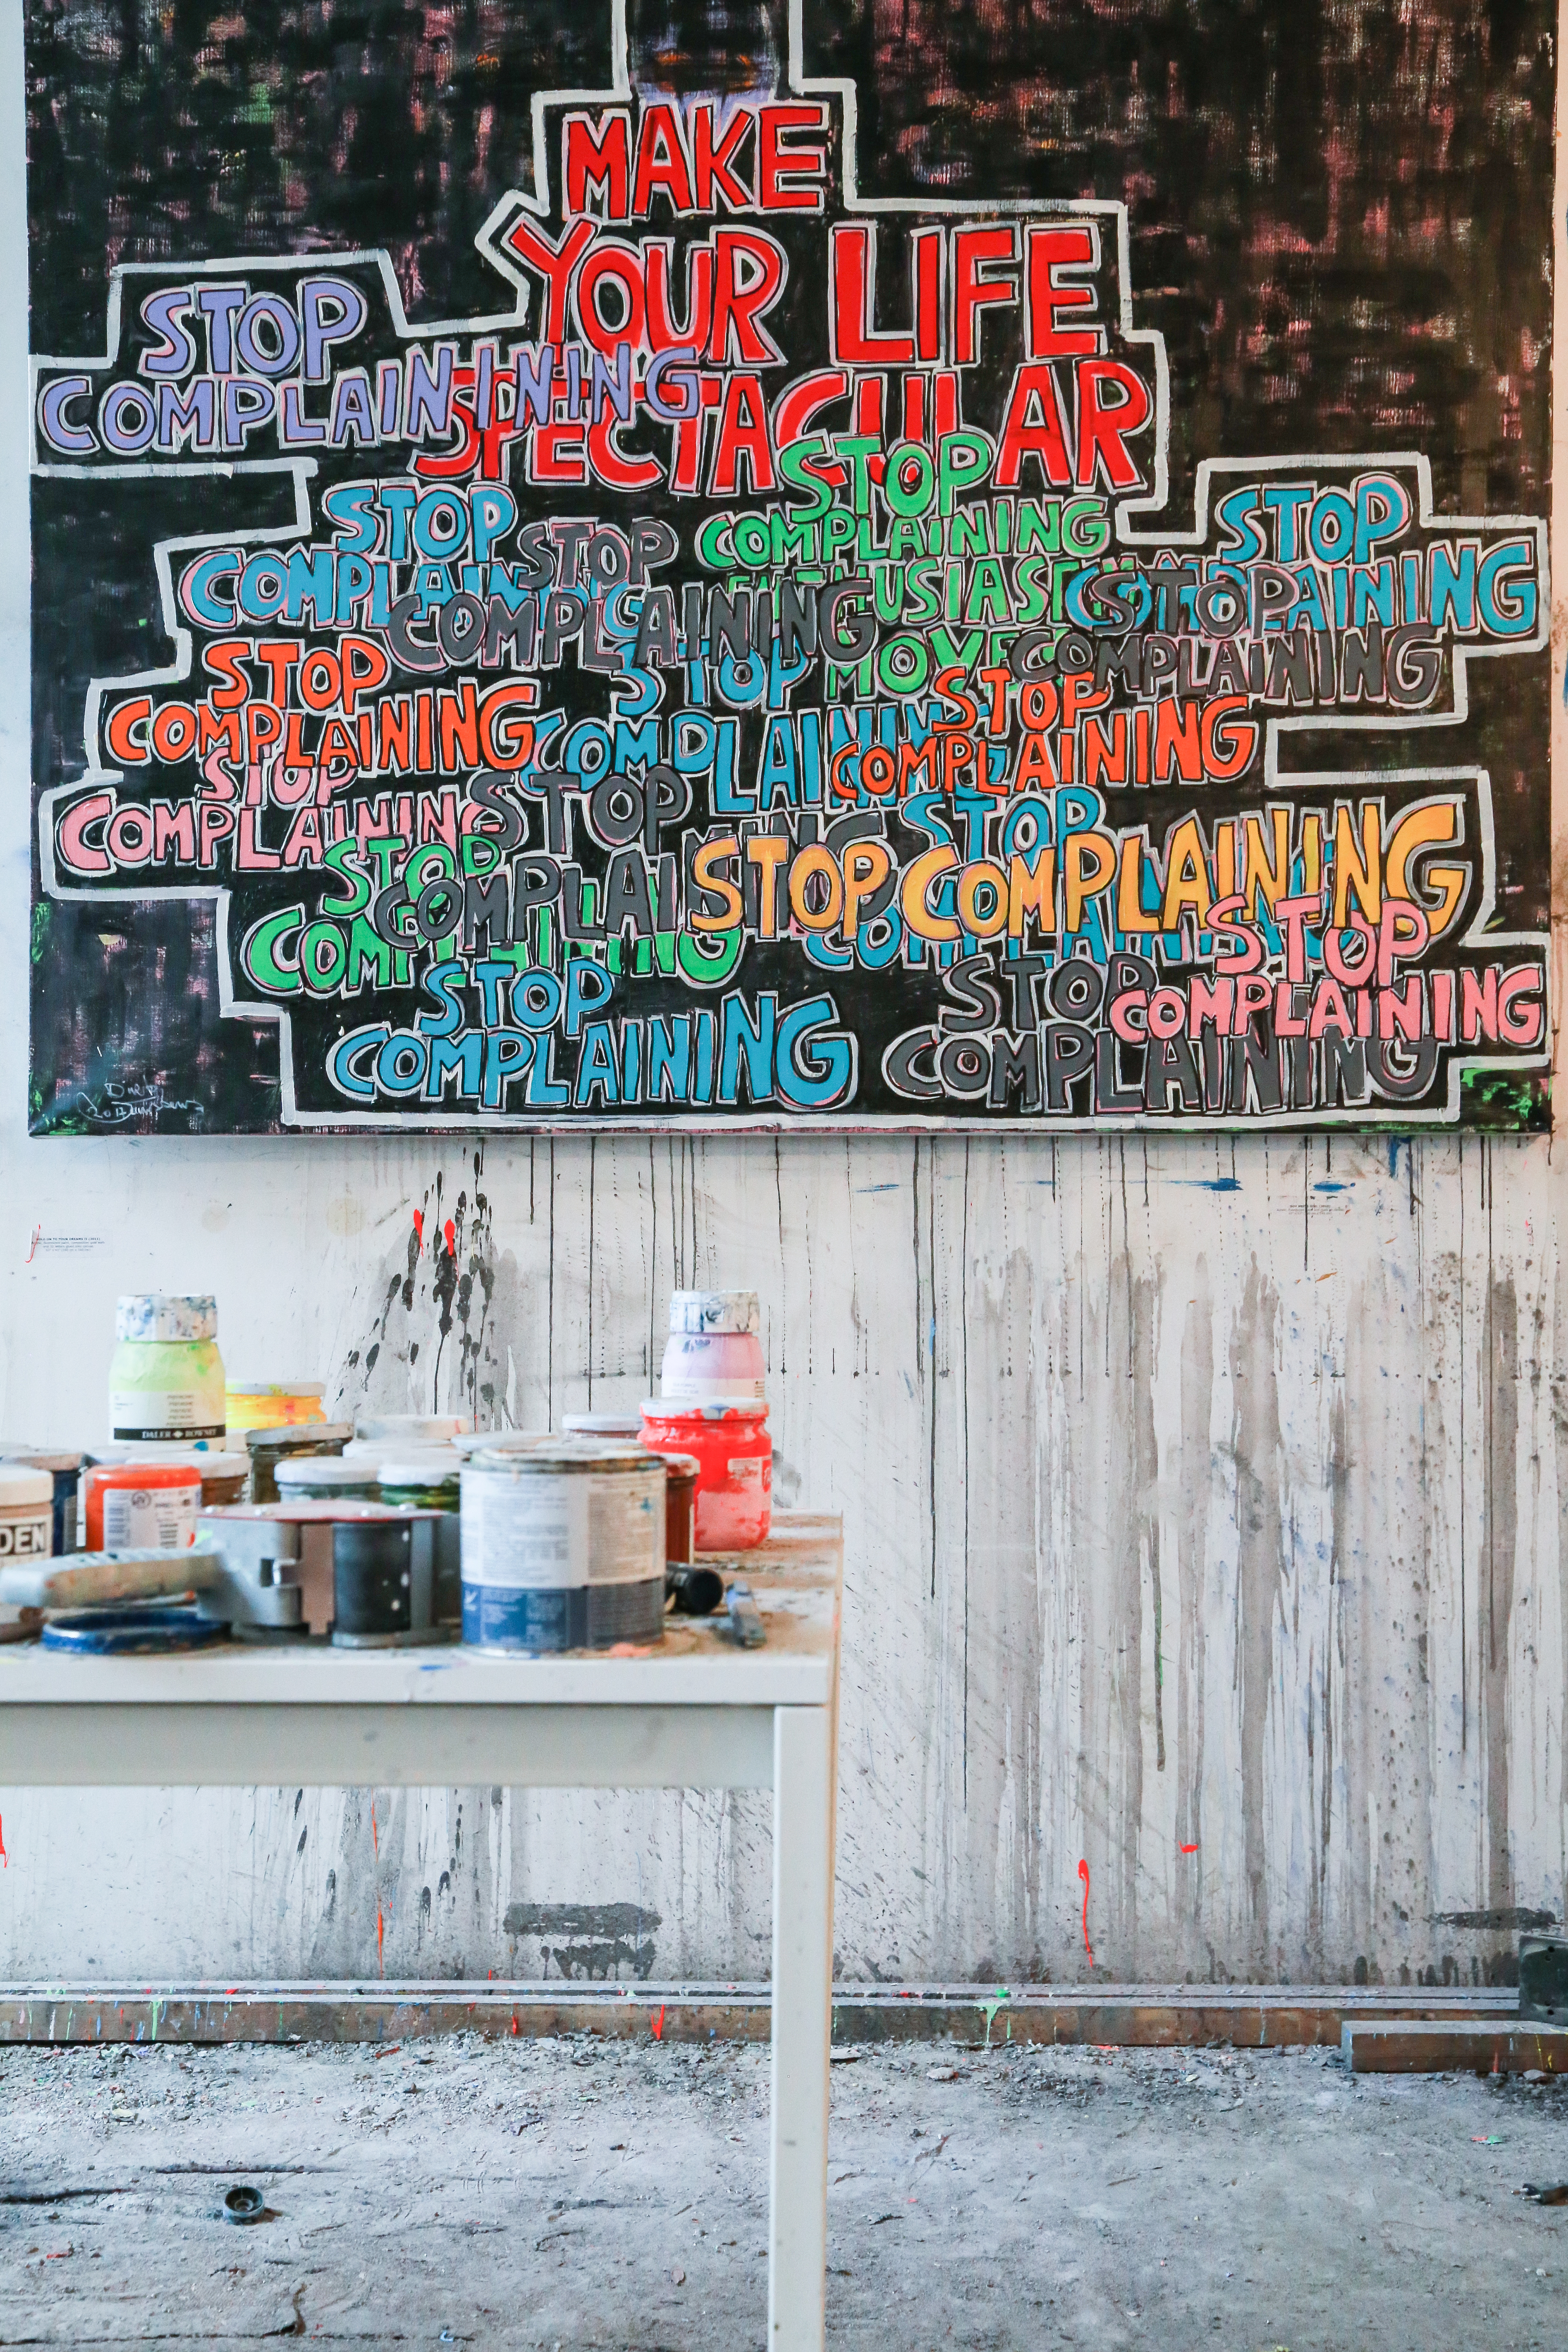 MAKE
YOUR LIFE
SPECTACULAR
STOP
COMPLAINING
STOP
COMPLAINING
STOP
COMPLAINING
ENTHUSIASM
MOVES
STOP
COMPLAINING
STOP
COMPLAINING
STOP
COMPLAINING
STOP
COMPLAINING
STOP
COMPLAINING
STOP
COMPLAINING
STOP
COMPLAINING
STOP
COMPLAINING
STOP
COMPLAINING
STOP COMPLAINING
STOP
COMPLAINING
STOP
COMPLAINING
STOP
COMPLAINING
STOP
COMPLAINING
STOP
COMPLAINING
DALER ROWNEY
DEN